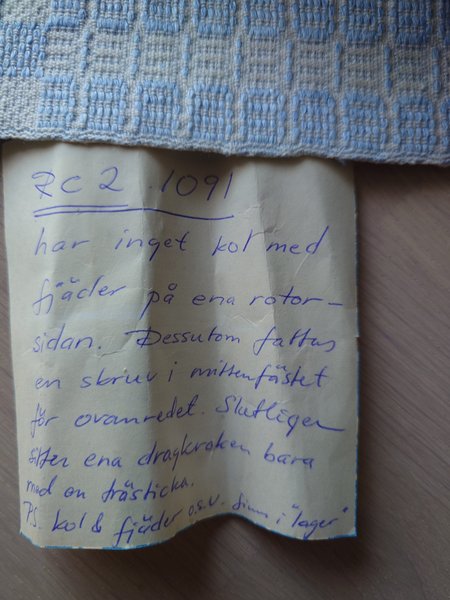 RC 2 1091
har inget kol med
fjäder på ena rotor-
sidan. Dessutom fattas
en skruv i mittenfästet
för ovanredet. Slutligen
sitter ena dragkroken bara
med en trästicka.
P.S. kol & fjäder o.s.v. finns i "lager"